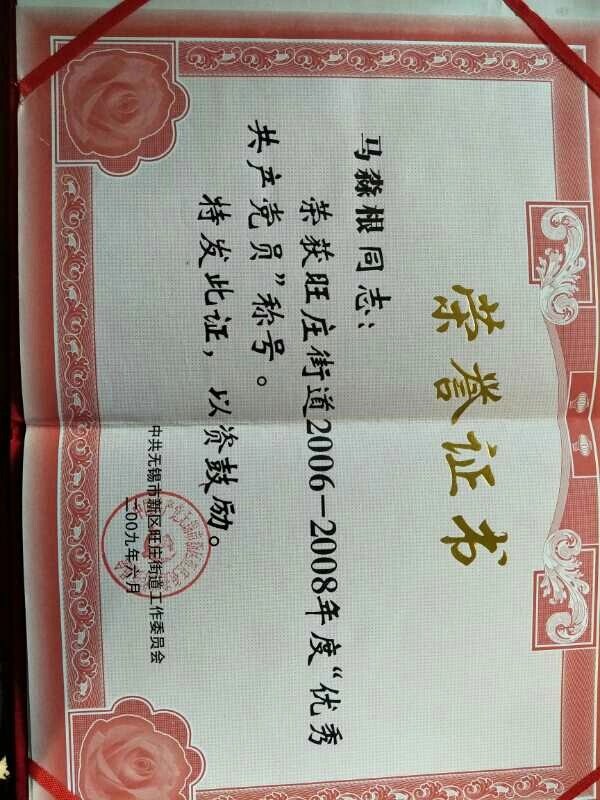 荣誉证书
马森根同志：
荣获旺庄街道2006-2008年度“优秀
共产党员”称号。
特发此证，以资鼓励。
中共无锡市新区旺庄街道工作委员会
二00九年六月